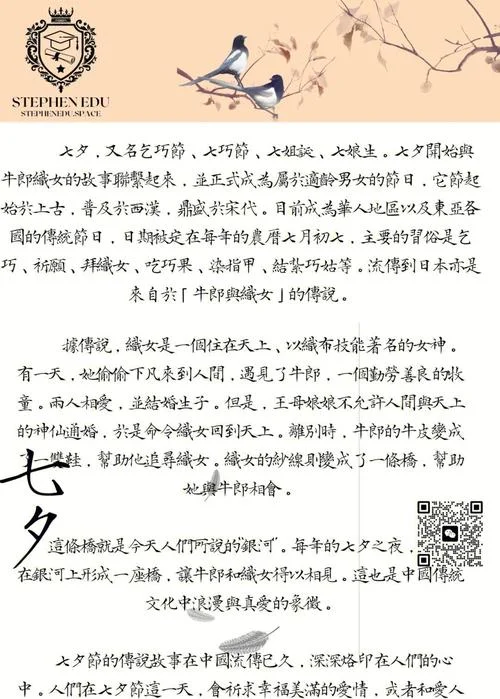 STEPHEN EDU
STEPHENEDU.SPACE
七夕，又名乞巧節、七巧節、七姐誕、七娘生。七夕開始與
牛郎織女的故事聯繫起來，並正式成為屬於適齡男女的節日，它節起
始於上古，普及於西漢，鼎盛於宋代。目前成為華人地區以及東亞各
國的傳統節日，日期被定在每年的農曆七月初七，主要的習俗是乞
巧、祈願、拜織女、吃巧果、染指甲、結紮巧姑等。流傳到日本亦是
來自於「牛郎與織女」的傳說。
據傳說，織女是一個住在天上、以織布技能著名的女神。
有一天，她偷偷下凡來到人間，遇見了牛郎，一個勤勞善良的牧
童。兩人相愛，並結婚生子。但是，王母娘娘不允許人間與天上
的神仙通婚，於是命令織女回到天上。離別時，牛郎的牛皮變成
了一雙鞋，幫助他追尋織女。織女的紗線則變成了一條橋，幫助
她與牛郎相會。
七夕
這條橋就是今天人們所說的"銀河"。每年的七夕之夜，
在銀河上形成一座橋，讓牛郎和織女得以相見。這也是中國傳統
文化中浪漫與真愛的象徵。
七夕節的傳說故事在中國流傳已久，深深烙印在人們的心
中。人們在七夕節這一天，會祈求幸福美滿的愛情，或者和愛人